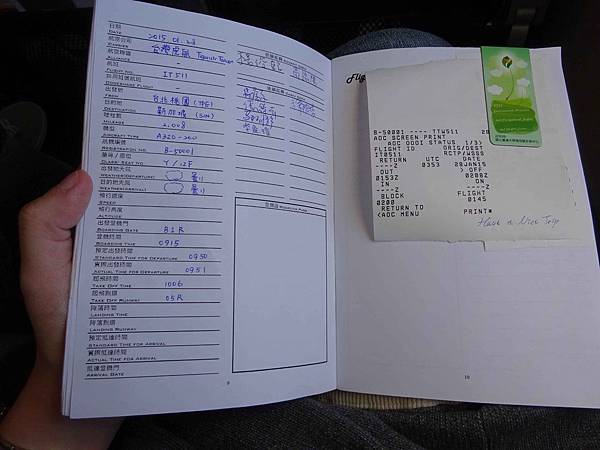 日期
DATE
2015.01.28
航空公司
CARRIER
台灣虎航 Tigerair Taiwan
航空聯盟
ALLIANCE
-
航班
FLIGHT NO.
IT511
共用班號航班
CODESHARE FLIGHT
-
出發地
FROM
台北桃園 (TPE)
目的地
DESTINATION
新加坡 (SIN)
哩程數
MILEAGE
2,008
機型
AIRCRAFT TYPE
A320-200
飛機編號
REGISTRATION NO.
B-50001
艙等/座位
CLASS/ SEAT NO.
Y / 12F
出發地天氣
WEATHER(DEPARTURE)
目的地天氣
WEATHER(ARRIVAL)
飛行速度
SPEED
飛行高度
ALTITUDE
出發登機門
DEPARTURE GATE
B1R
登機時間
BOARDING TIME
0915
預定出發時間
STANDARD TIME FOR DEPARTURE
0950
實際出發時間
ACTUAL TIME FOR DEPARTURE
0951
起飛時間
TAKE OFF TIME
1006
起飛跑道
TAKE OFF RUNWAY
05R
降落時間
LANDING TIME
降落跑道
LANDING RUNWAY
預定抵達時間
STANDARD TIME FOR ARRIVAL
實際抵達時間
ACTUAL TIME FOR ARRIVAL
抵達登機門
ARRIVAL GATE
9
Flig
B-50001 ---- TTW511 28
AOC SCREEN PRINT
AOC OOOI STATUS 1/3>
FLIGHT ID ORIG/DEST
IT0511 RCTP/WSSS
RETURN UTC DATE
----Z 0353 28JAN15
OUT > OFF
0153Z 0208Z
IN ON
----Z ----Z
BLOCK FLIGHT
0200 0145
RETURN TO
<AOC MENU PRINT*
Have a Nice Trip
10